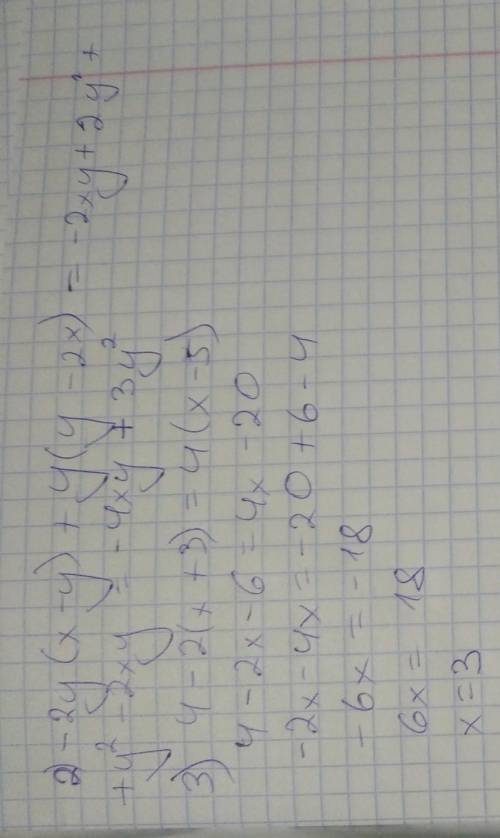 2) -2y(x-y) + y(y-2x) = -2xy + 2y² +
+ y² - 2xy = -4xy + 3y²
3) 4 - 2(x+3) = 4(x-5)
4 - 2x - 6 = 4x - 20
-2x - 4x = -20 + 6 - 4
-6x = -18
6x = 18
x = 3